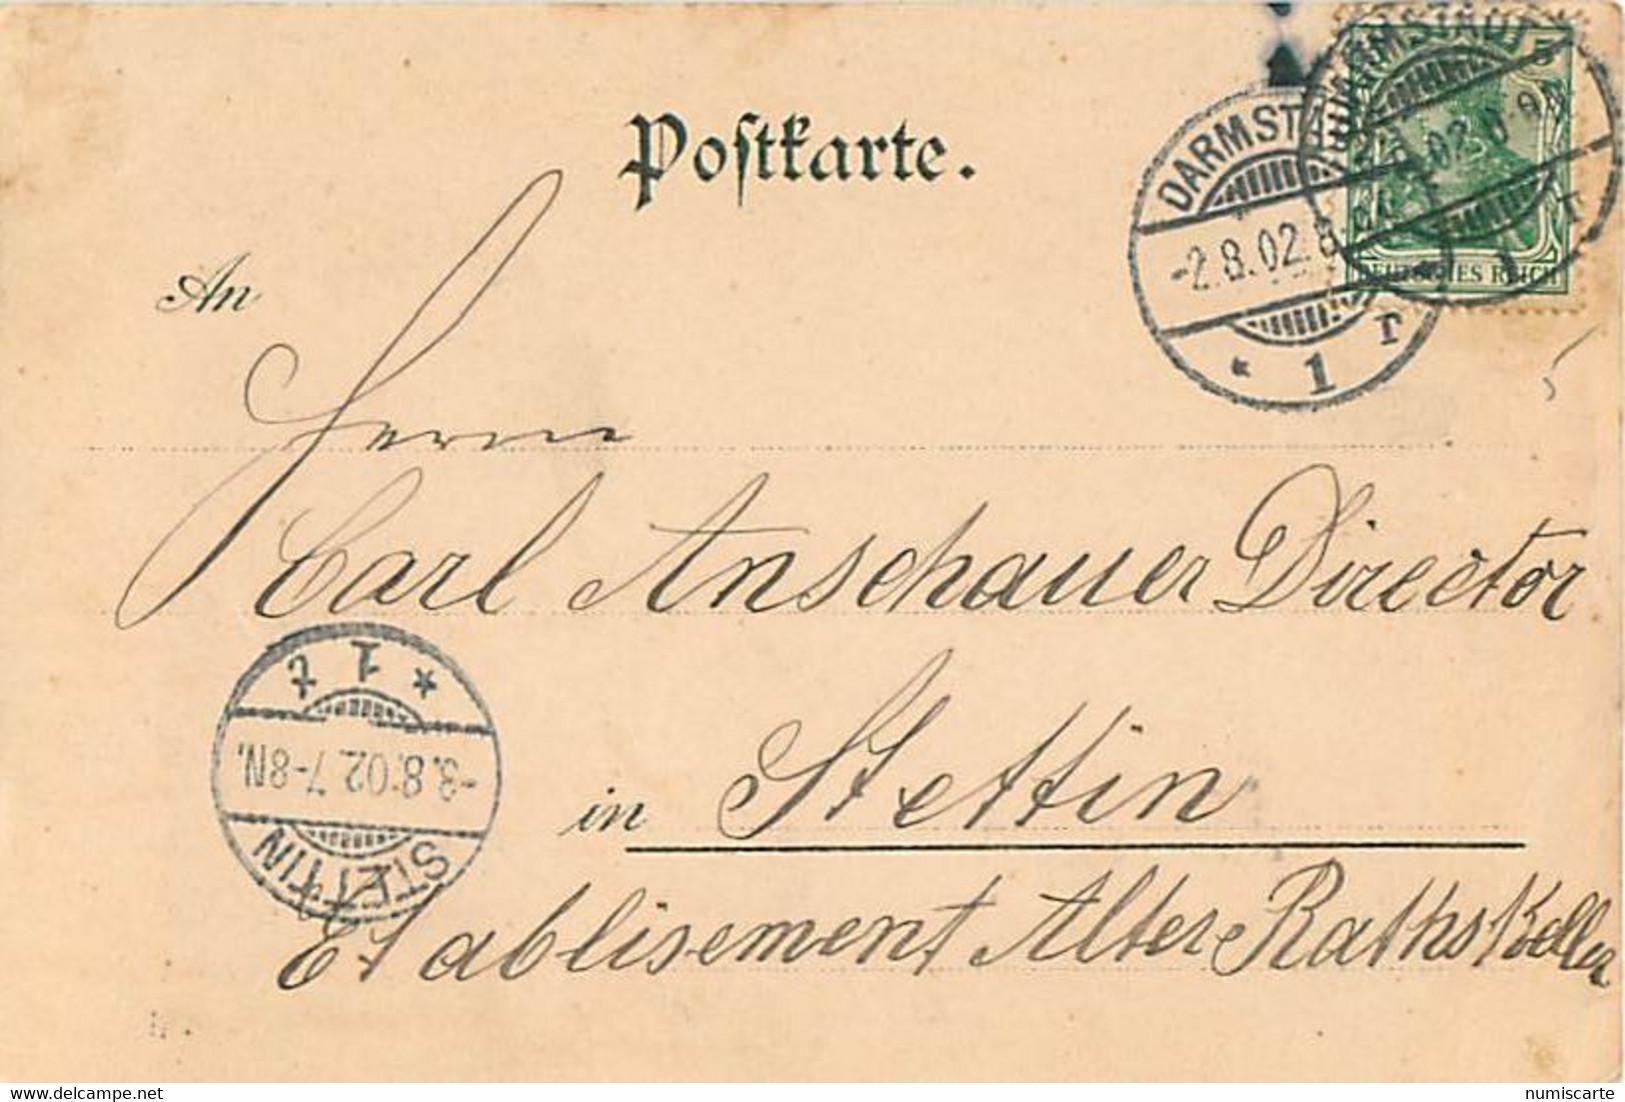 Postkarte.
DARMSTADT
5
-2.8.02.8
* 1 r
DEUTSCHES REICH
An
Herrn
Carl Anschauer Director
in Stettin
Etablisement Alter Raths Keller
STETTIN
-3.8.02.7-8N.
* 1 t
delcampe.net
numiscarte